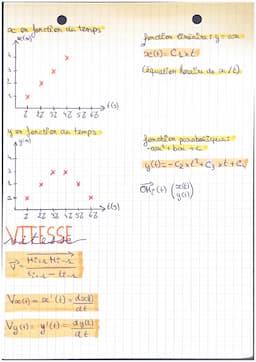 x en fonction du temps
x(m)
4
3
2
1
1τ 2τ 3τ 4τ 5τ 6τ
t(s)
fonction linéaire : y = ax
x(t) = C₁ × t
(équation horaire de x/t)
y en fonction du temps
y(m)
4
3
2
1τ 2τ 3τ 4τ 5τ 6τ
t(s)
fonction parabolique :
-ax² + bx + c
y(t) = -C₂ × t² + C₃ × t + C₄
OMᵢ(t) (x(t)
y(t))
VITESSE
vitesse
V =
Vx(t) = x'(t) = dx(t)
dt
Vy(t) = y'(t) = dy(t)
dt